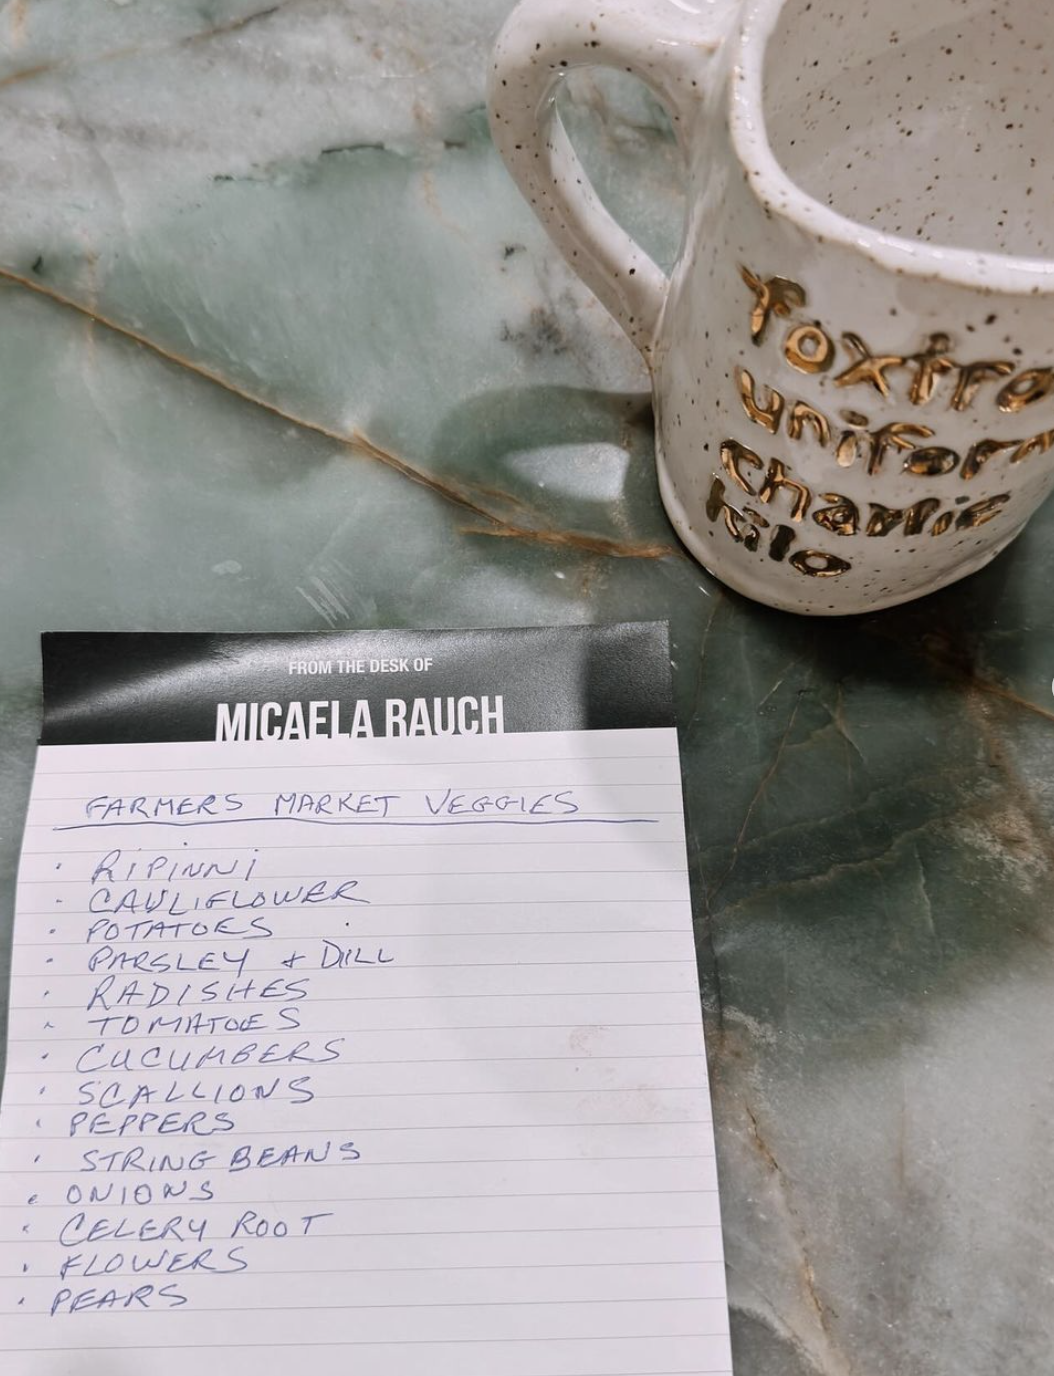 foxtro
uniform
charlie
kilo
FROM THE DESK OF
MICAELA RAUCH
FARMERS MARKET VEGGIES
· RIPINNI
· CAULIFLOWER
· POTATOES
· PARSLEY & DILL
· RADISHES
· TOMATOES
· CUCUMBERS
· SCALLIONS
· PEPPERS
· STRING BEANS
· ONIONS
· CELERY ROOT
· FLOWERS
· PEARS